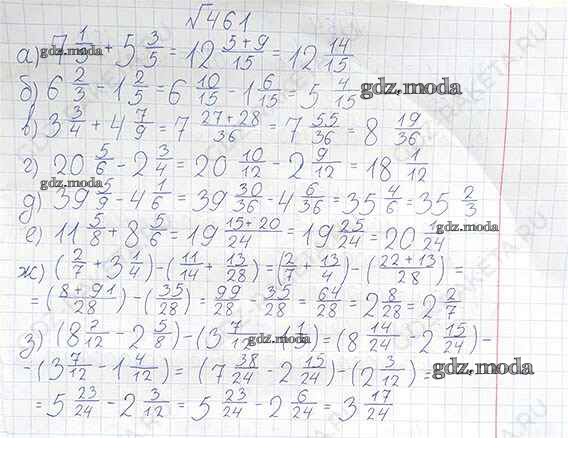 №461
а) 7 1/3 + 5 3/5 = 12 (5+9)/15 = 12 14/15
б) 6 2/3 - 1 2/5 = 6 10/15 - 1 6/15 = 5 4/15
в) 3 3/4 + 4 7/9 = 7 (27+28)/36 = 7 55/36 = 8 19/36
г) 20 5/6 - 2 3/4 = 20 10/12 - 2 9/12 = 18 1/12
д) 39 5/9 - 4 1/6 = 39 30/36 - 4 6/36 = 35 4/6 = 35 2/3
е) 11 5/8 + 8 5/6 = 19 (15+20)/24 = 19 25/24 = 20 1/24
ж) (2/7 + 3 1/4) - (11/14 + 13/28) = (2/7 + 13/4) - ((22+13)/28) =
= ((8+91)/28) - (35/28) = 99/28 - 35/28 = 64/28 = 2 8/28 = 2 2/7
з) (8 7/12 - 2 5/8) - (3 7/12 - 1 1/3) = (8 14/24 - 2 15/24) -
- (3 7/12 - 1 4/12) = (7 38/24 - 2 15/24) - (2 3/12) =
= 5 23/24 - 2 3/12 = 5 23/24 - 2 6/24 = 3 17/24
gdz.moda
gdz.moda
gdz.moda
gdz.moda
gdz.moda
gdz.moda
gdz.moda